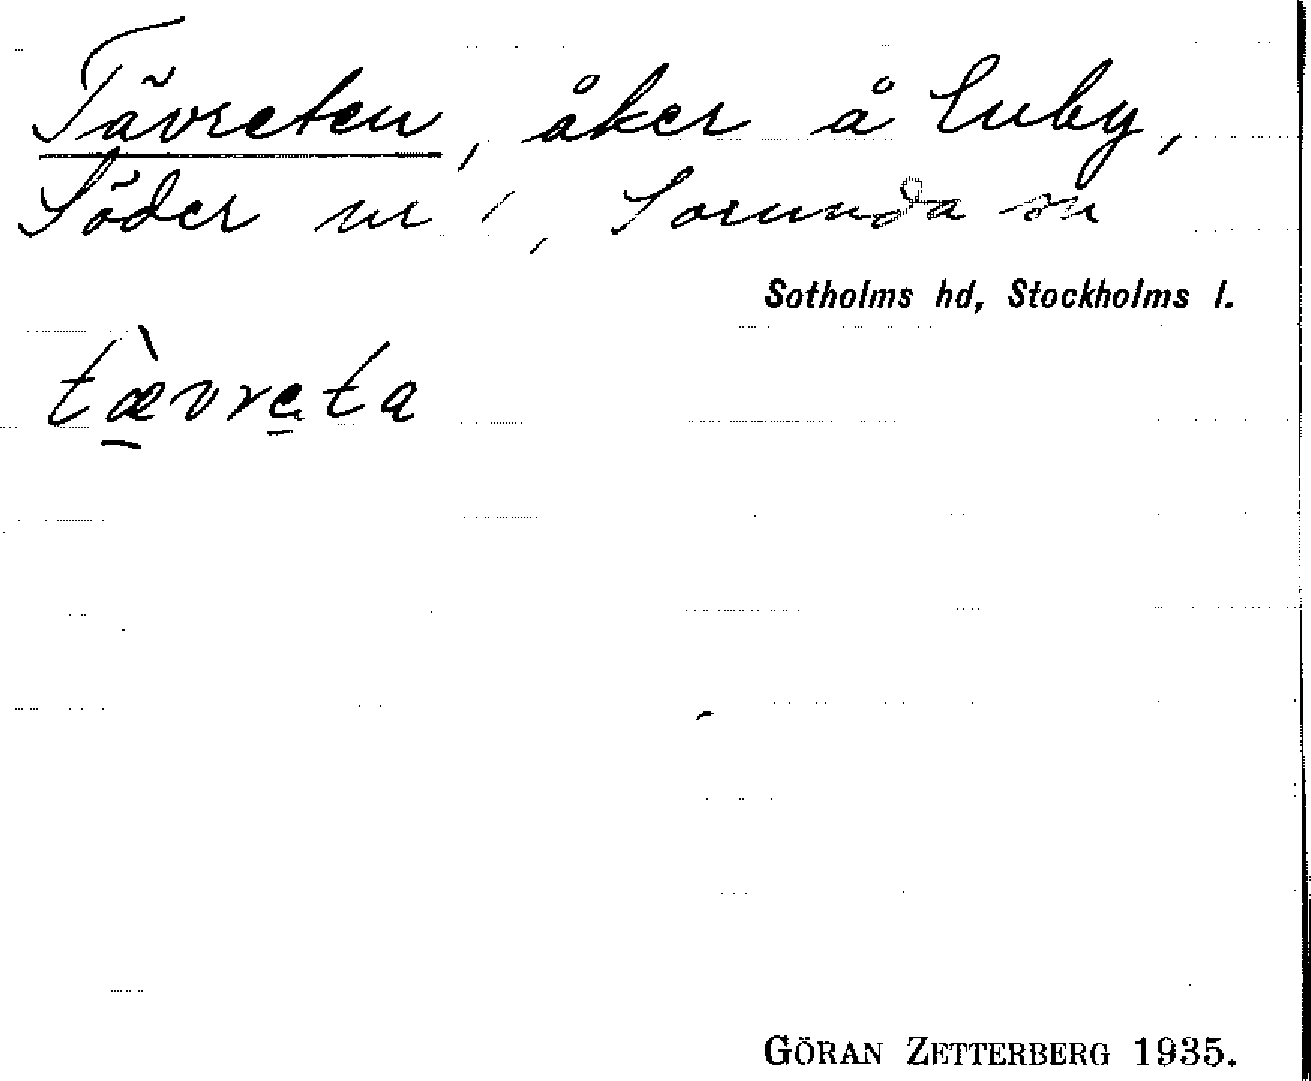 Tävreten, åker å Luby,
Söder nr 1, Sorunda sn
Sotholms hd, Stockholms l.
tævreta
GÖRAN ZETTERBERG 1935.